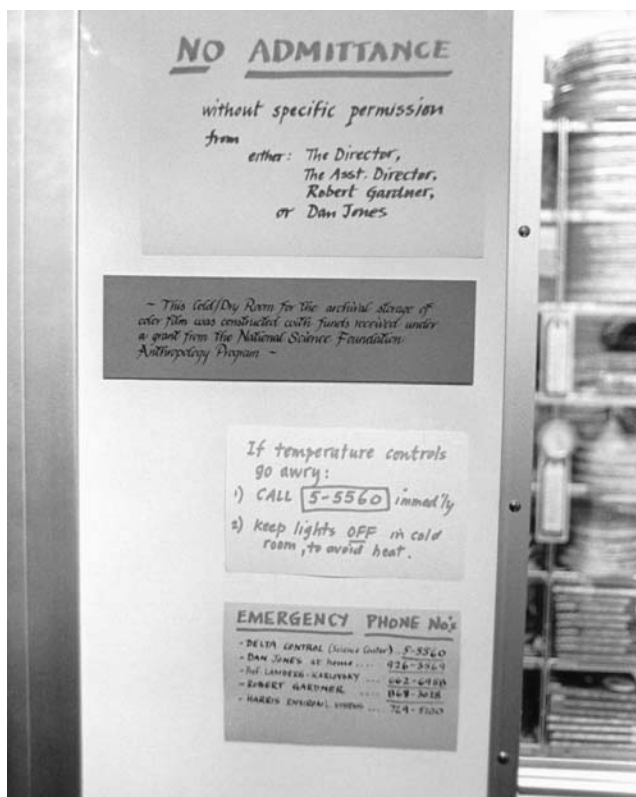 NO ADMITTANCE
without specific permission
from
either: The Director,
The Asst. Director,
Robert Gardner,
or Dan Jones
~ This Cold/Dry Room for the archival storage of
color film was constructed with funds received under
a grant from the National Science Foundation
Anthropology Program ~
If temperature controls
go awry:
1) CALL 5-5560 immed'ly
2) keep lights OFF in cold
room, to avoid heat.
EMERGENCY PHONE No's
- DELTA CONTROL (Science Center) .. 5-5560
- DAN JONES at home .... 926-3569
- Prof. LAMBERG-KARLOVSKY ....
- ROBERT GARDNER .... 868-3028
- HARRIS ENVIRON'L .... 729-5100